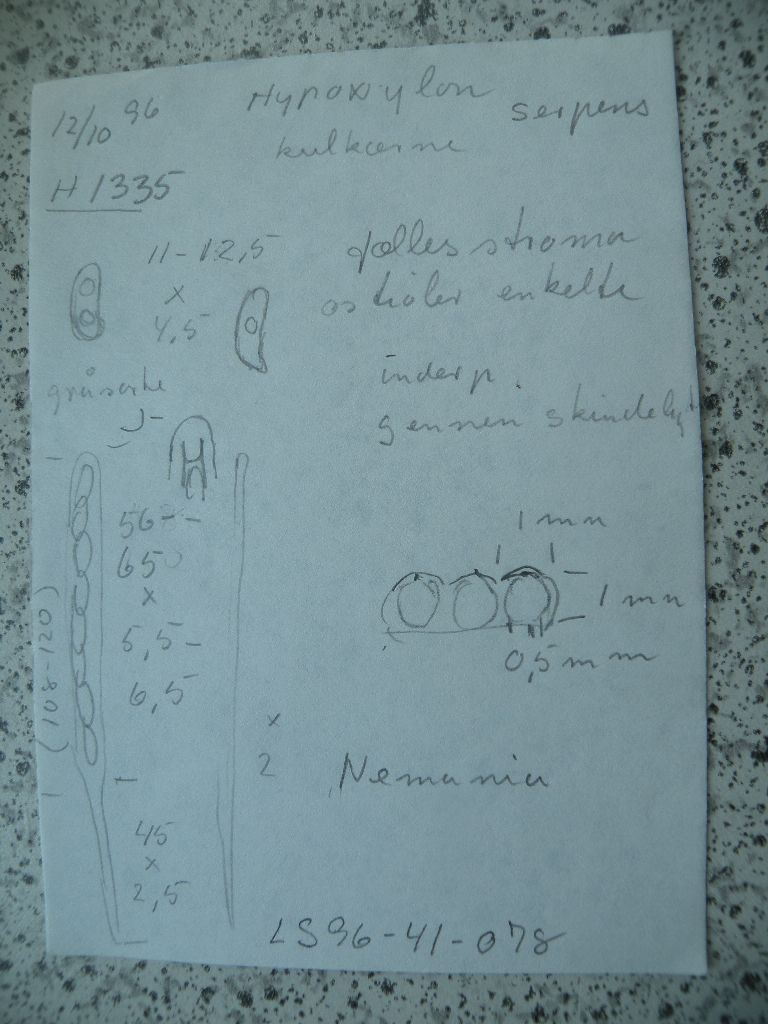 12/10 96
Hypoxylon serpens
kulkærne
H 1335
11-12,5
x
4,5
fælles stroma
ostioler enkelte
inderp.
gennem
J-
56--
65
x
5,5-
6,5
(108-120)
45
x
2,5
x
2
1 mm
1 mm
0,5 mm
Nemania
LS96-41-078